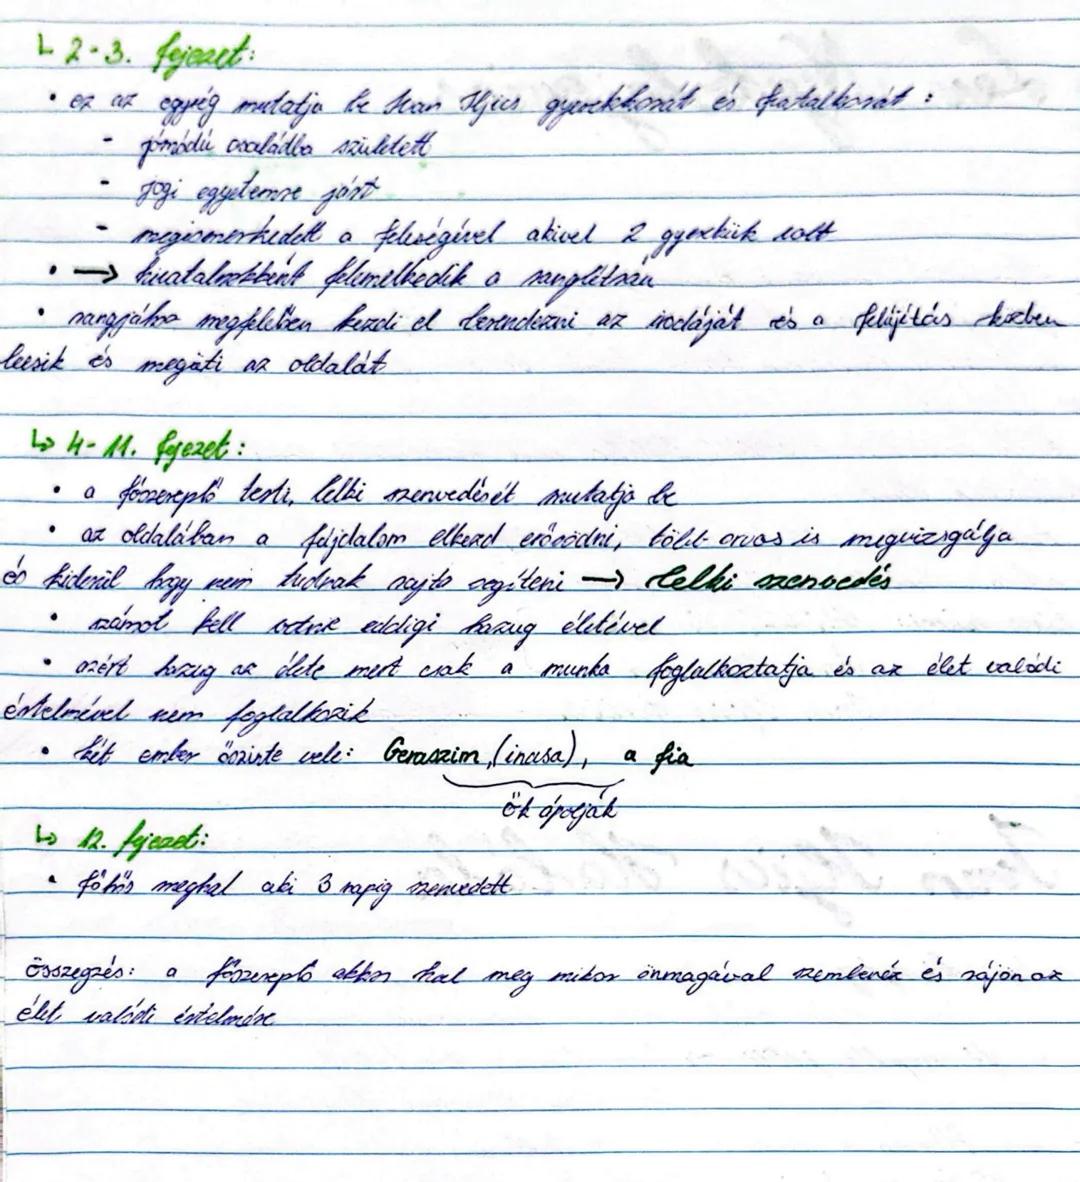 ↳ 2-3. fejezet:
• ez az egység mutatja be Ivan Iljics gyerekkorát és fiatalkorát:
- jómódú családba született
- jogi egyetemre járt
- megismerkedett a feleségével akivel 2 gyerekük volt
• → hivatalnokként felemelkedik a ranglétrán
• rangjához megfelelően kezdi el berendezni az irodáját és a felújítás közben
leesik és megüti az oldalát
↳ 4-11. fejezet:
• a főszereplő testi, lelki szenvedését mutatja be
• az oldalában a fájdalom elkezd erősödni, több orvos is megvizsgálja
és kiderül hogy nem tudnak rajta segíteni → lelki szenvedés
• számot kell vetnie eddigi hazug életével
• azért hazug az élete mert csak a munka foglalkoztatja és az élet valódi
értelmével nem foglalkozik
• két ember őszinte vele: Geraszim, (inasa), a fia
ők ápolják
↳ 12. fejezet:
• főhős meghal aki 3 napig szenvedett
összegzés: a főszereplő akkor hal meg mikor önmagával szembenéz és rájön az
élet valódi értelmére